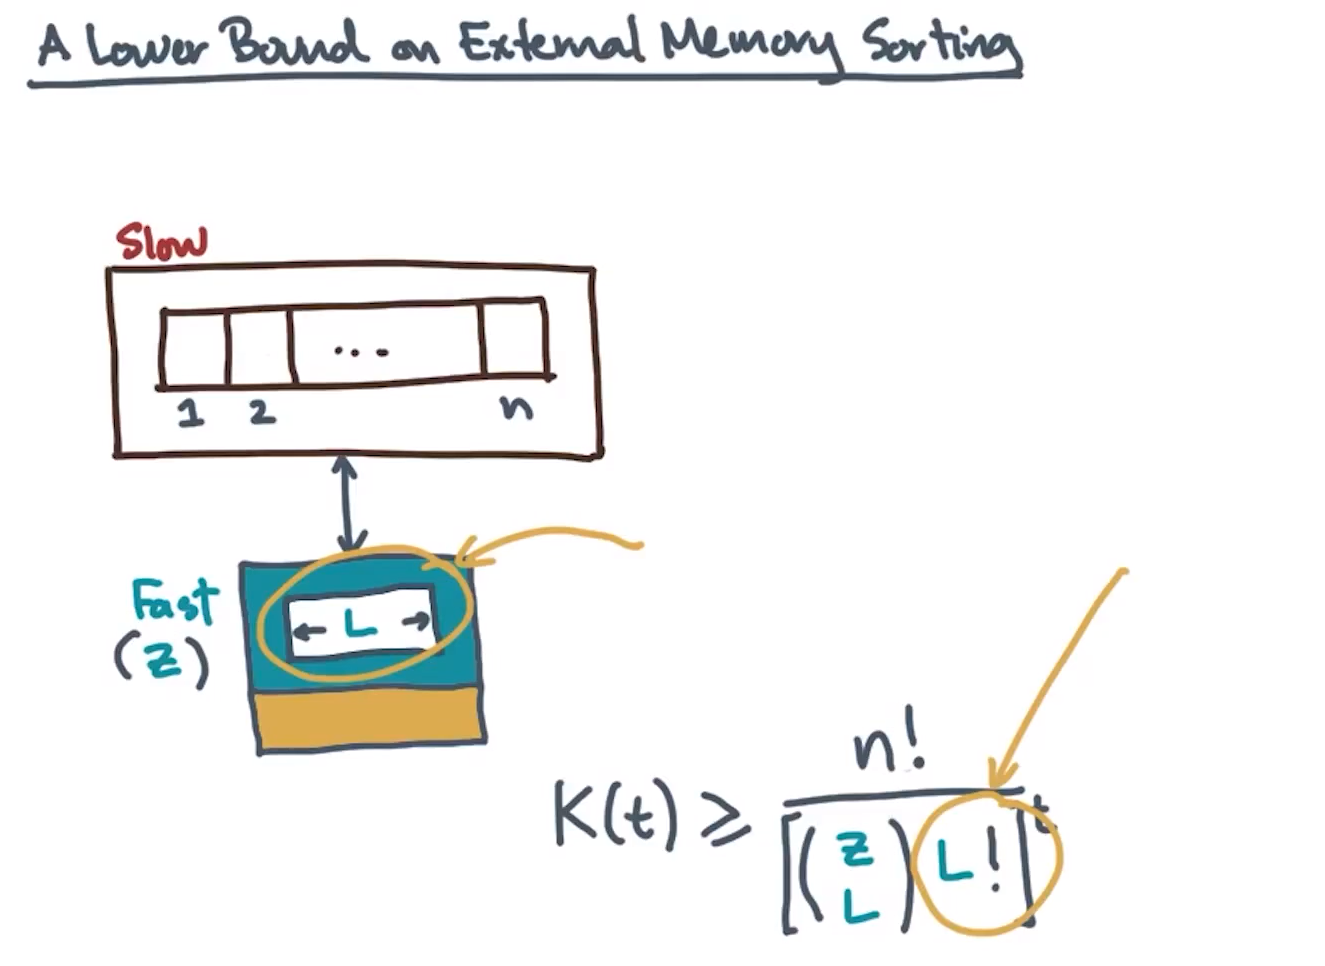 A Lower Bound on External Memory Sorting
Slow
...
1 2 n
Fast
(Z)
← L →
n!
K(t) ≥ ——
[(Z L) L!]^t